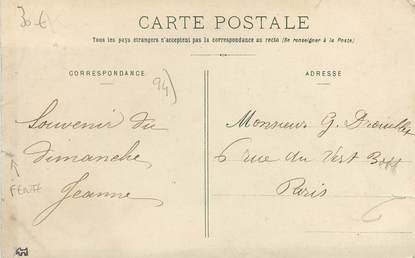 30 €
CARTE POSTALE
Tous les pays étrangers n'acceptent pas la correspondance au recto (Se renseigner à la Poste)
CORRESPONDANCE
94)
Souvenir du
dimanche
Jeanne
FENTE
ADRESSE
Monsieur G.
6 rue du Vert Bois
Paris